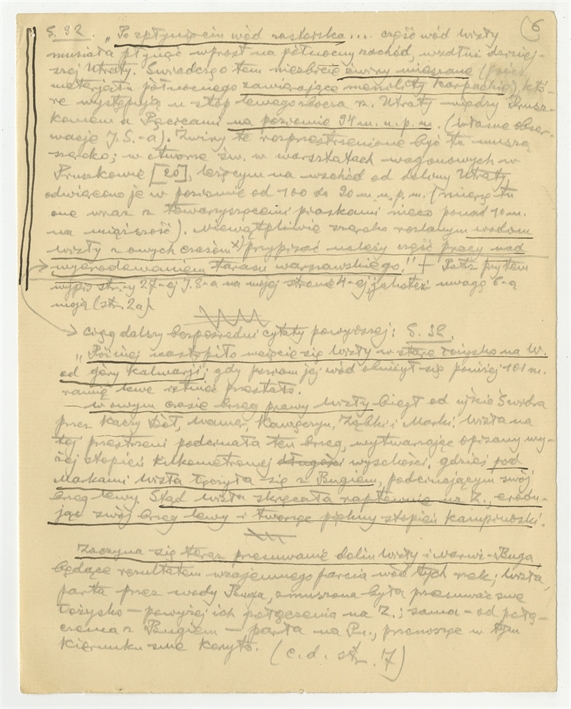 (6
S. 32. „Po spłynięciu wód zastoiska... część wód Wisły
musiała płynąć wprost na północny zachód, wzdłuż dzisiej-
szej Utraty. Świadczą o tem niezbicie żwiry mieszane (prócz
materjału północnego zawierające otoczaki karpackie), któ-
re występują u stóp lewego zbocza rz. Utraty między Prusz-
kowem a Pęcicami na poziomie 94 m. n. p. m. (własne obser-
wacje J. S.-a). Żwiry te rozprzestrzenione być tu muszą
szeroko; w otworze św. w warsztatach wagonowych w
Pruszkowie [20], leżącym na wschód od doliny Utraty,
odwiercono je w poziomie od 100 do 90 m. n. p. m. (mierzą tu
one wraz z towarzyszącemi piaskami nieco ponad 10 m.
na miąższość). Niewątpliwie szeroko rozlanym wodom
Wisły z owych czasów przypisać należy część pracy nad
wyrównywaniem tarasu warszawskiego." – Patrz przytem
wypis str. 27-ej J. S-a na mojej stronie 4-ej jakoteż uwagę 6-a
moją (str. 2a).
→ Ciąg dalszy bezpośredni cytaty powyższej: S. 32.
„Później nastąpiło wcięcie się Wisły w stare łożysko na W.
od góry Kalwarji; gdy poziom jej wód obniżył się poniżej 101 m.
ramię lewe istnieć przestało.
– W owym czasie brzeg prawy Wisły biegł od ujścia Świdra
przez Kaczy Dół, Wawer, Kawęczyn, Ząbki i Marki. Wisła na
tej przestrzeni podcinała ten brzeg, wytwarzając opisany wy-
żej stopień kilkometrowej wysokości, gdzieś pod
Markami Wisła łączyła się z Bugiem, podcinającym swój
brzeg lewy. Stąd Wisła skręcała raptownie na Z., erodu-
jąc swój brzeg lewy i tworząc piękny stopień kampinoski.
Zaczyna się teraz przesuwanie dolin Wisły i Narwi-Buga
będące rezultatem wzajemnego parcia wód tych rzek; Wisła,
parta przez wody Buga, zmuszona była przesuwać swe
łożysko – powyżej ich połączenia na Z.; sama – od połą-
czenia z Bugiem – parła na Pn., przenosząc w tym
kierunku swe koryto. (c. d. str. 7)